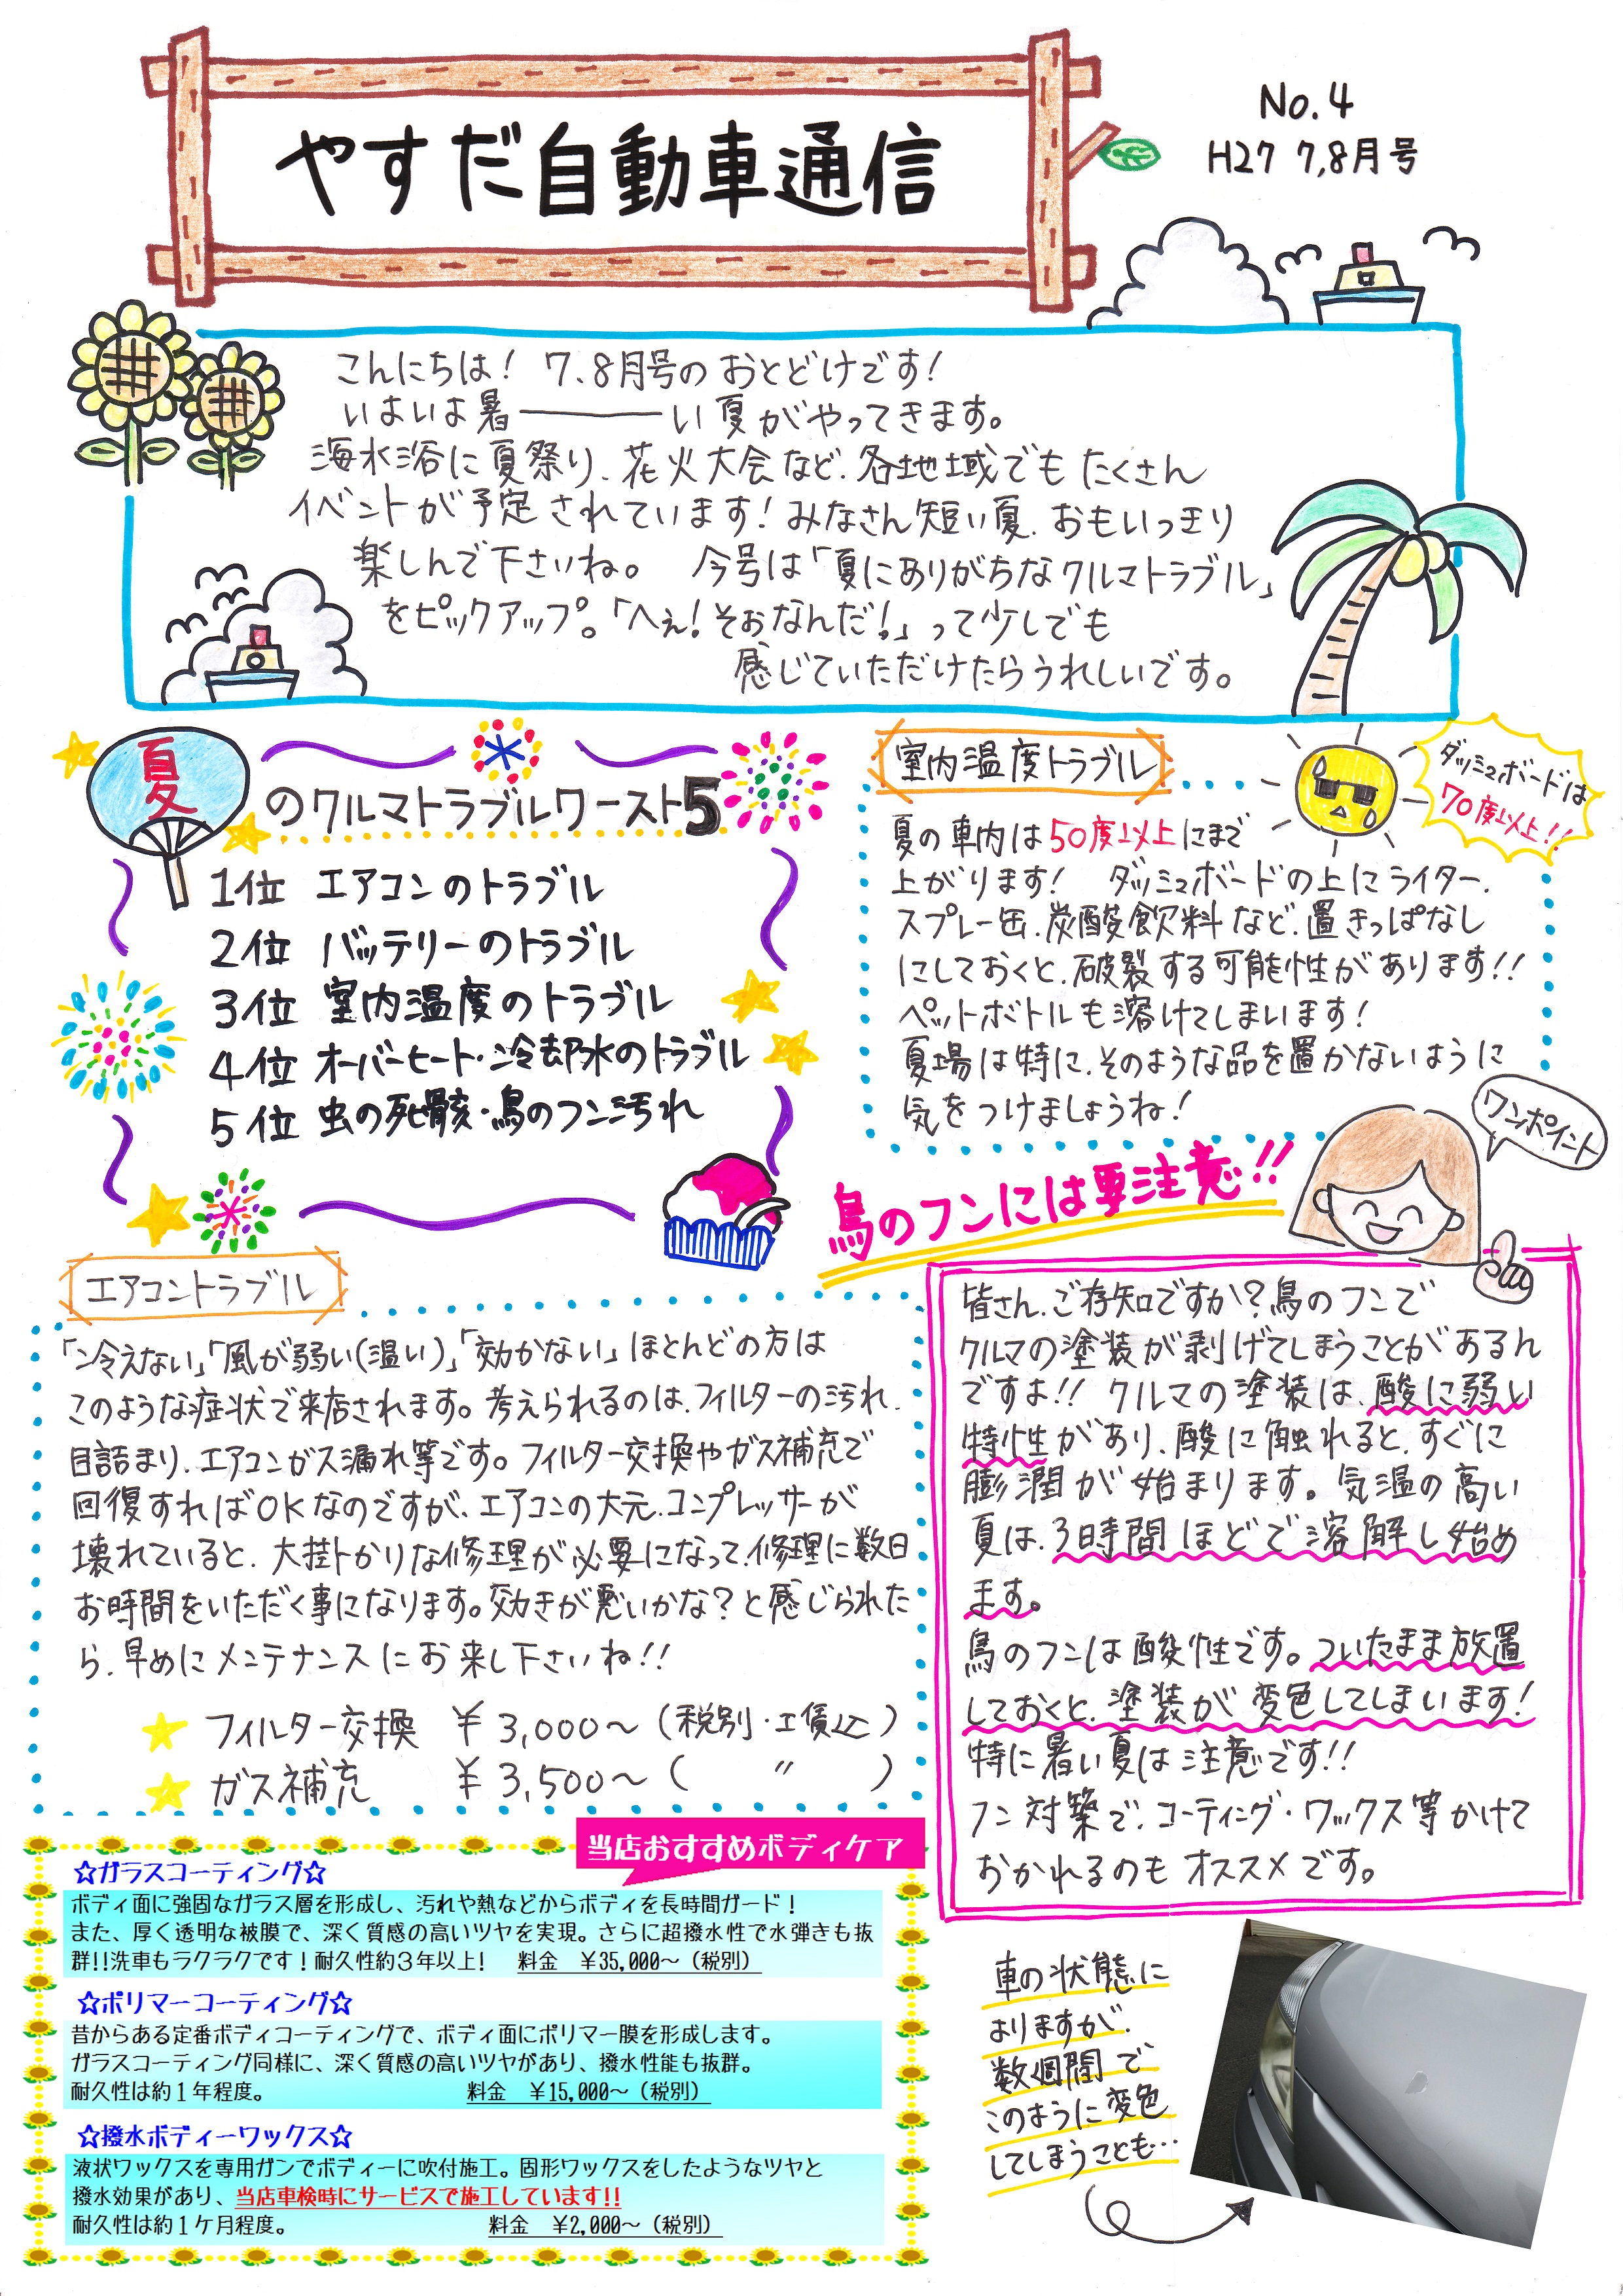 やすだ自動車通信
No.4
H27 7,8月号
こんにちは! 7、8月号のおとどけです!
いよいよ暑―――い夏がやってきます。
海水浴に夏祭り、花火大会など、各地域でもたくさん
イベントが予定されています!みなさん短い夏、おもいっきり
楽しんで下さいね。 今号は「夏にありがちなクルマトラブル」
をピックアップ。「へぇ!そぉなんだ!」って少しでも
感じていただけたらうれしいです。
夏のクルマトラブルワースト5
1位 エアコンのトラブル
2位 バッテリーのトラブル
3位 室内温度のトラブル
4位 オーバーヒート・冷却水のトラブル
5位 虫の死骸・鳥のフン汚れ
室内温度トラブル
ダッシュボードは
70度以上!!
夏の車内は50度以上にまで
上がります! ダッシュボードの上にライター、
スプレー缶、炭酸飲料など、置きっぱなし
にしておくと、破裂する可能性があります!!
ペットボトルも溶けてしまいます!
夏場は特に、そのような品を置かないように
気をつけましょうね!
ワンポイント
鳥のフンには要注意!!
皆さん、ご存知ですか?鳥のフンで
クルマの塗装が剥げてしまうことがあるん
ですよ!! クルマの塗装は、酸に弱い
特性があり、酸に触れると、すぐに
膨潤が始まります。気温の高い
夏は、3時間ほどで溶解し始め
ます。
鳥のフンは酸性です。ついたまま放置
しておくと、塗装が変色してしまいます!
特に暑い夏は注意です!!
フン対築で、コーティング・ワックス等かけて
おかれるのもオススメです。
車の状態に
よりますが、
数週間で
このように変色
してしまうことも…
エアコントラブル
「冷えない」「風が弱い(温い)」「効かない」ほとんどの方は
このような症状で来店されます。考えられるのは、フィルターの汚れ、
目詰まり、エアコンガス漏れ等です。フィルター交換やガス補充で
回復すればOKなのですが、エアコンの大元、コンプレッサーが
壊れていると、大掛かりな修理が必要になって、修理に数日
お時間をいただく事になります。効きが悪いかな?と感じられた
ら、早めにメンテナンスにお来し下さいね!!
フィルター交換 ¥3,000〜(税別・工賃込)
ガス補充 ¥3,500〜( 〃 )
当店おすすめボディケア
☆ガラスコーティング☆
ボディ面に強固なガラス層を形成し、汚れや熱などからボディを長時間ガード!
また、厚く透明な被膜で、深く質感の高いツヤを実現。さらに超撥水性で水弾きも抜
群!!洗車もラクラクです!耐久性約3年以上! 料金 ¥35,000〜(税別)
☆ポリマーコーティング☆
昔からある定番ボディコーティングで、ボディ面にポリマー膜を形成します。
ガラスコーティング同様に、深く質感の高いツヤがあり、撥水性能も抜群。
耐久性は約1年程度。 料金 ¥15,000〜(税別)
☆撥水ボディーワックス☆
液状ワックスを専用ガンでボディーに吹付施工。固形ワックスをしたようなツヤと
撥水効果があり、当店車検時にサービスで施工しています!!
耐久性は約1ケ月程度。 料金 ¥2,000〜(税別)